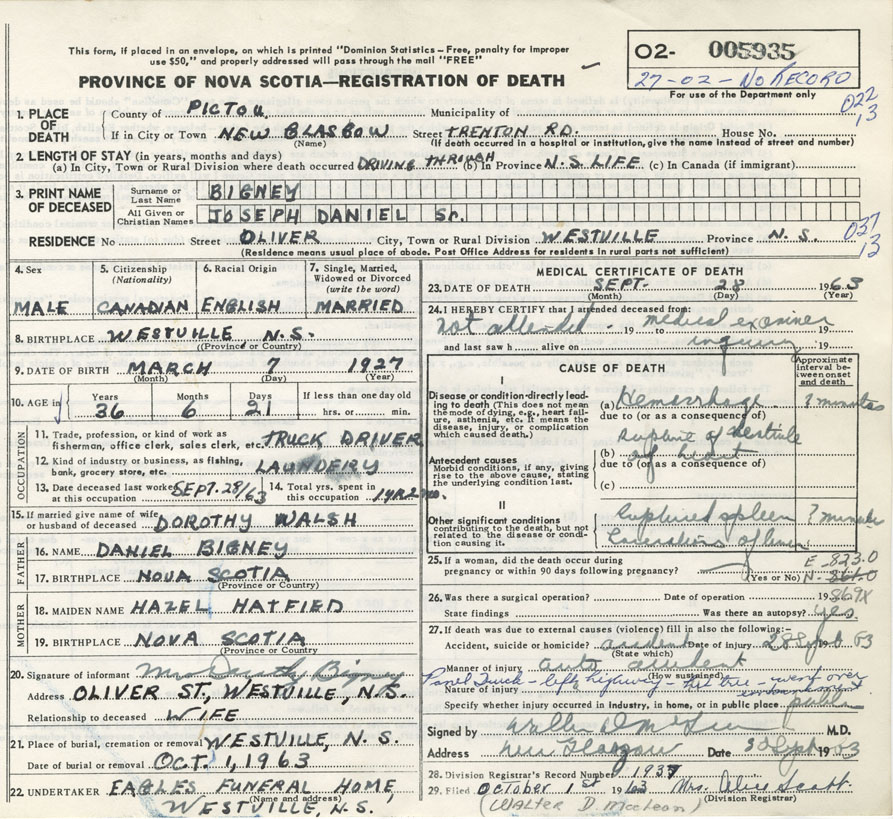 This form, if placed in an envelope, on which is printed "Dominion Statistics – Free, penalty for improper
use $50," and properly addressed will pass through the mail "FREE"
PROVINCE OF NOVA SCOTIA—REGISTRATION OF DEATH
O2- 005935
27-02 - NO RECORD
For use of the Department only
022
13
1. PLACE OF DEATH
County of PICTOU Municipality of
If in City or Town NEW GLASGOW Street TRENTON RD. House No.
(Name) (If death occurred in a hospital or institution, give the name instead of street and number)
2. LENGTH OF STAY (in years, months and days)
(a) In City, Town or Rural Division where death occurred DRIVING THROUGH (b) In Province N.S. LIFE (c) In Canada (if immigrant)
3. PRINT NAME OF DECEASED
Surname or Last Name BIGNEY
All Given or Christian Names JOSEPH DANIEL Sr.
RESIDENCE No Street OLIVER City, Town or Rural Division WESTVILLE Province N. S.
037
13
(Residence means usual place of abode. Post Office Address for residents in rural parts not sufficient)
4. Sex MALE
5. Citizenship (Nationality) CANADIAN
6. Racial Origin ENGLISH
7. Single, Married, Widowed or Divorced (write the word) MARRIED
8. BIRTHPLACE WESTVILLE N.S.
(Province or Country)
9. DATE OF BIRTH MARCH 7 1927
(Month) (Day) (Year)
10. AGE in Years 36 Months 6 Days 21 If less than one day old hrs. or min.
OCCUPATION
11. Trade, profession, or kind of work as fisherman, office clerk, sales clerk, etc. TRUCK DRIVER
12. Kind of industry or business, as fishing, bank, grocery store, etc. LAUNDERY
13. Date deceased last worked at this occupation SEPT. 28/63
14. Total yrs. spent in this occupation 1 YR 2 MO.
15. If married give name of wife or husband of deceased DOROTHY WALSH
FATHER
16. NAME DANIEL BIGNEY
17. BIRTHPLACE NOVA SCOTIA
(Province or Country)
MOTHER
18. MAIDEN NAME HAZEL HATFIED
19. BIRTHPLACE NOVA SCOTIA
(Province or Country
20. Signature of informant Mrs Dorothy Bigney
Address OLIVER ST., WESTVILLE, N.S.
Relationship to deceased WIFE
21. Place of burial, cremation or removal WESTVILLE, N. S.
Date of burial or removal OCT. 1, 1963
22. UNDERTAKER EAGLES FUNERAL HOME,
(Name and address)
WESTVILLE, N.S.
MEDICAL CERTIFICATE OF DEATH
23. DATE OF DEATH SEPT. 28 1963
(Month) (Day) (Year)
24. I HEREBY CERTIFY that I attended deceased from:
not attended - 19 medical examiner 19
and last saw h alive on inquiry 19
CAUSE OF DEATH
Approximate interval between onset and death
I
Disease or condition directly leading to death (This does not mean the mode of dying, e.g., heart failure, asthenia, etc. It means the disease, injury, or complication which caused death.)
(a) Hemorrhage ? minutes
due to (or as a consequence of)
Antecedent causes
Morbid conditions, if any, giving rise to the above cause, stating the underlying condition last.
Rupture of
(b) of heart
due to (or as a consequence of)
(c)
II
Other significant conditions contributing to the death, but not related to the disease or condition causing it.
Ruptured spleen ? minutes
Lacerations of liver
25. If a woman, did the death occur during pregnancy or within 90 days following pregnancy?
(Yes or No)
E - 823.0
N - 861.0
869X
26. Was there a surgical operation? Date of operation 19
State findings Was there an autopsy? yes.
27. If death was due to external causes (violence) fill in also the following:–
Accident, suicide or homicide? accident Date of injury 28 Sept 1963
(State which)
Manner of injury auto accident
(How sustained)
Panel Truck - left highway - hit tree - went over embankment
Nature of injury
Specify whether injury occurred in Industry, in home, or in public place public
Signed by Walter D McLean M.D.
Address New Glasgow Date 30 Sept 1963
28. Division Registrar's Record Number 1937
29. Filed October 1st 1963 Mrs. Alice Scott
(Division Registrar)
(WALTER D. MccLean)